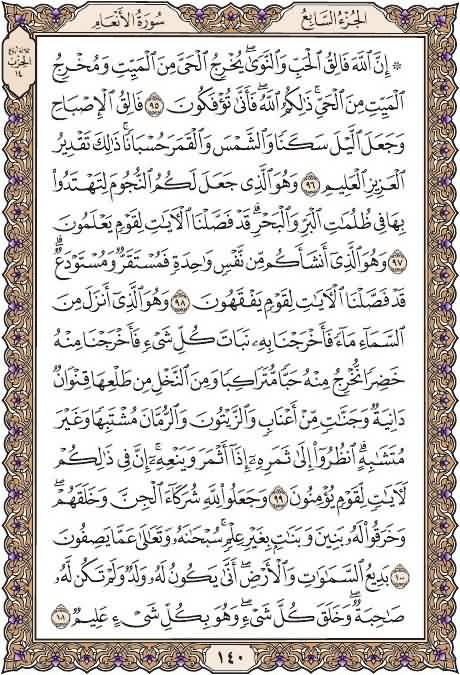 الجُزءُ السَّابِعُ
سُورَةُ الأَنعَامِ
ثلاثة أرباع
الحزب
١٤
۞ إِنَّ ٱللَّهَ فَالِقُ ٱلْحَبِّ وَٱلنَّوَىٰ يُخْرِجُ ٱلْحَيَّ مِنَ ٱلْمَيِّتِ وَمُخْرِجُ
ٱلْمَيِّتِ مِنَ ٱلْحَيِّ ذَٰلِكُمُ ٱللَّهُ فَأَنَّىٰ تُؤْفَكُونَ ٩٥ فَالِقُ ٱلْإِصْبَاحِ
وَجَعَلَ ٱلَّيْلَ سَكَنًا وَٱلشَّمْسَ وَٱلْقَمَرَ حُسْبَانًا ذَٰلِكَ تَقْدِيرُ
ٱلْعَزِيزِ ٱلْعَلِيمِ ٩٦ وَهُوَ ٱلَّذِي جَعَلَ لَكُمُ ٱلنُّجُومَ لِتَهْتَدُوا۟
بِهَا فِي ظُلُمَٰتِ ٱلْبَرِّ وَٱلْبَحْرِ قَدْ فَصَّلْنَا ٱلْءَايَٰتِ لِقَوْمٍ يَعْلَمُونَ
٩٧ وَهُوَ ٱلَّذِيٓ أَنشَأَكُم مِّن نَّفْسٍ وَٰحِدَةٍ فَمُسْتَقَرٌّ وَمُسْتَوْدَعٌ
قَدْ فَصَّلْنَا ٱلْءَايَٰتِ لِقَوْمٍ يَفْقَهُونَ ٩٨ وَهُوَ ٱلَّذِيٓ أَنزَلَ مِنَ
ٱلسَّمَآءِ مَآءً فَأَخْرَجْنَا بِهِۦ نَبَاتَ كُلِّ شَيْءٍ فَأَخْرَجْنَا مِنْهُ
خَضِرًا نُّخْرِجُ مِنْهُ حَبًّا مُّتَرَاكِبًا وَمِنَ ٱلنَّخْلِ مِن طَلْعِهَا قِنْوَانٌ
دَانِيَةٌ وَجَنَّٰتٍ مِّنْ أَعْنَابٍ وَٱلزَّيْتُونَ وَٱلرُّمَّانَ مُشْتَبِهًا وَغَيْرَ
مُتَشَٰبِهٍ ٱنظُرُوٓا۟ إِلَىٰ ثَمَرِهِۦٓ إِذَآ أَثْمَرَ وَيَنْعِهِۦٓ إِنَّ فِي ذَٰلِكُمْ
لَءَايَٰتٍ لِّقَوْمٍ يُؤْمِنُونَ ٩٩ وَجَعَلُوا۟ لِلَّهِ شُرَكَآءَ ٱلْجِنَّ وَخَلَقَهُمْ
وَخَرَقُوا۟ لَهُۥ بَنِينَ وَبَنَٰتٍ بِغَيْرِ عِلْمٍ سُبْحَٰنَهُۥ وَتَعَٰلَىٰ عَمَّا يَصِفُونَ
١٠٠ بَدِيعُ ٱلسَّمَٰوَٰتِ وَٱلْأَرْضِ أَنَّىٰ يَكُونُ لَهُۥ وَلَدٌ وَلَمْ تَكُن لَّهُۥ
صَٰحِبَةٌ وَخَلَقَ كُلَّ شَيْءٍ وَهُوَ بِكُلِّ شَيْءٍ عَلِيمٌ ١٠١
١٤٠